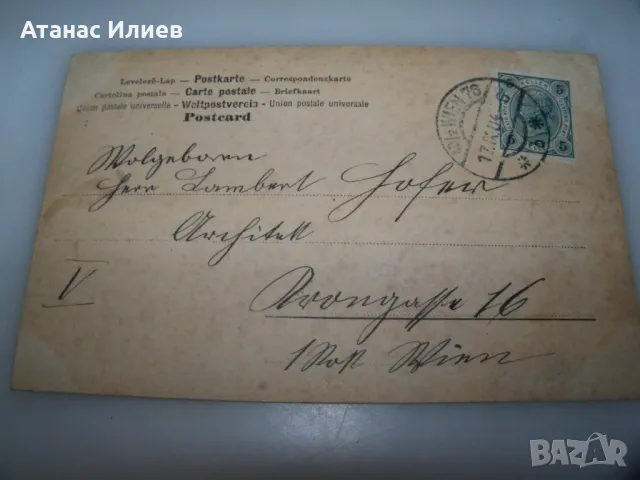 Атанас Илиев
Levelező-Lap — Postkarte — Correspondenzkarte
Cartolina postale — Carte postale — Briefkaart
Union postale universelle — Weltpostverein — Union postale universale
Postcard
5 5
WIEN 76
Wolgeboren
Herr Lambert Hofer
Architekt
V
Krongasse 16
Wien
BAZAR